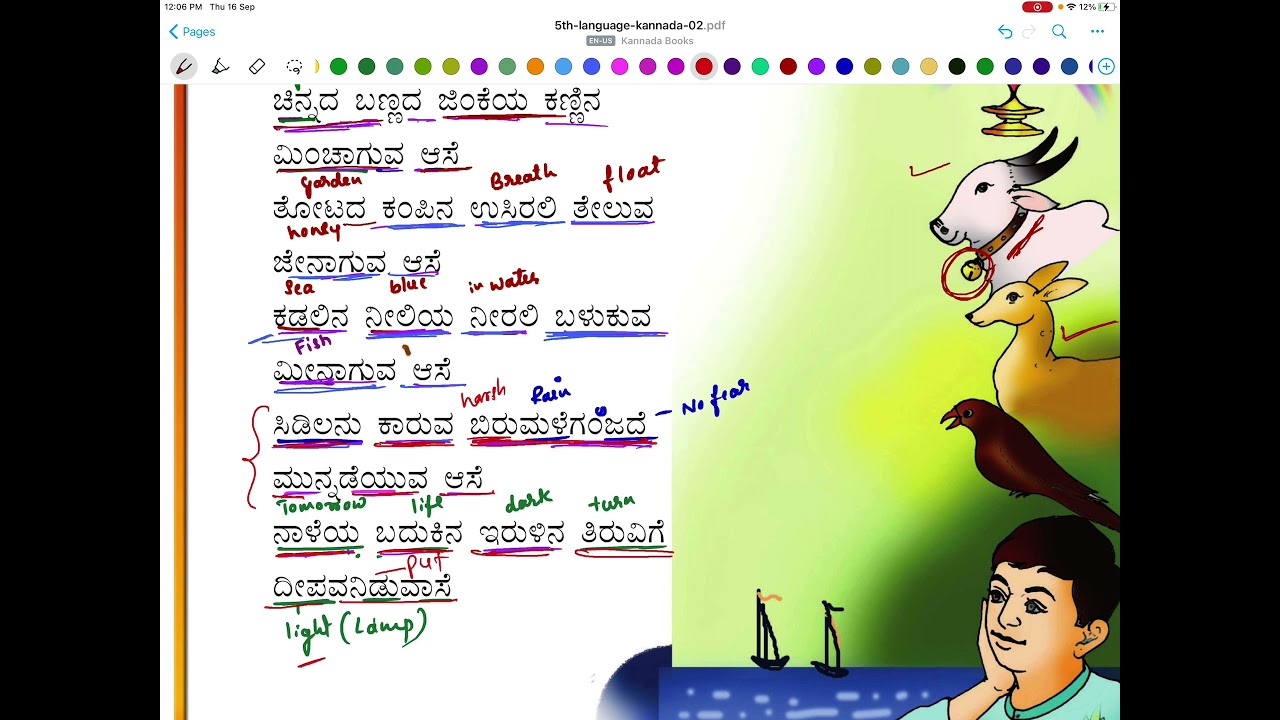 12:06 PM Thu 16 Sep
12%
Pages
5th-language-kannada-02.pdf
EN-US Kannada Books
ಚಿನ್ನದ ಬಣ್ಣದ ಜಿಂಕೆಯ ಕಣ್ಣಿನ
ಮಿಂಚಾಗುವ ಆಸೆ
garden Breath float
ತೋಟದ ಕಂಪಿನ ಉಸಿರಲಿ ತೇಲುವ
honey
ಜೇನಾಗುವ ಆಸೆ
Sea blue in water
ಕಡಲಿನ ನೀಲಿಯ ನೀರಲಿ ಬಳುಕುವ
Fish
ಮೀನಾಗುವ ಆಸೆ
harsh Rain No fear
ಸಿಡಿಲನು ಕಾರುವ ಬಿರುಮಳೆಗಂಜದೆ
ಮುನ್ನಡೆಯುವ ಆಸೆ
Tomorrow life dark turn
ನಾಳೆಯ ಬದುಕಿನ ಇರುಳಿನ ತಿರುವಿಗೆ
put
ದೀಪವನಿಡುವಾಸೆ
light (Lamp)